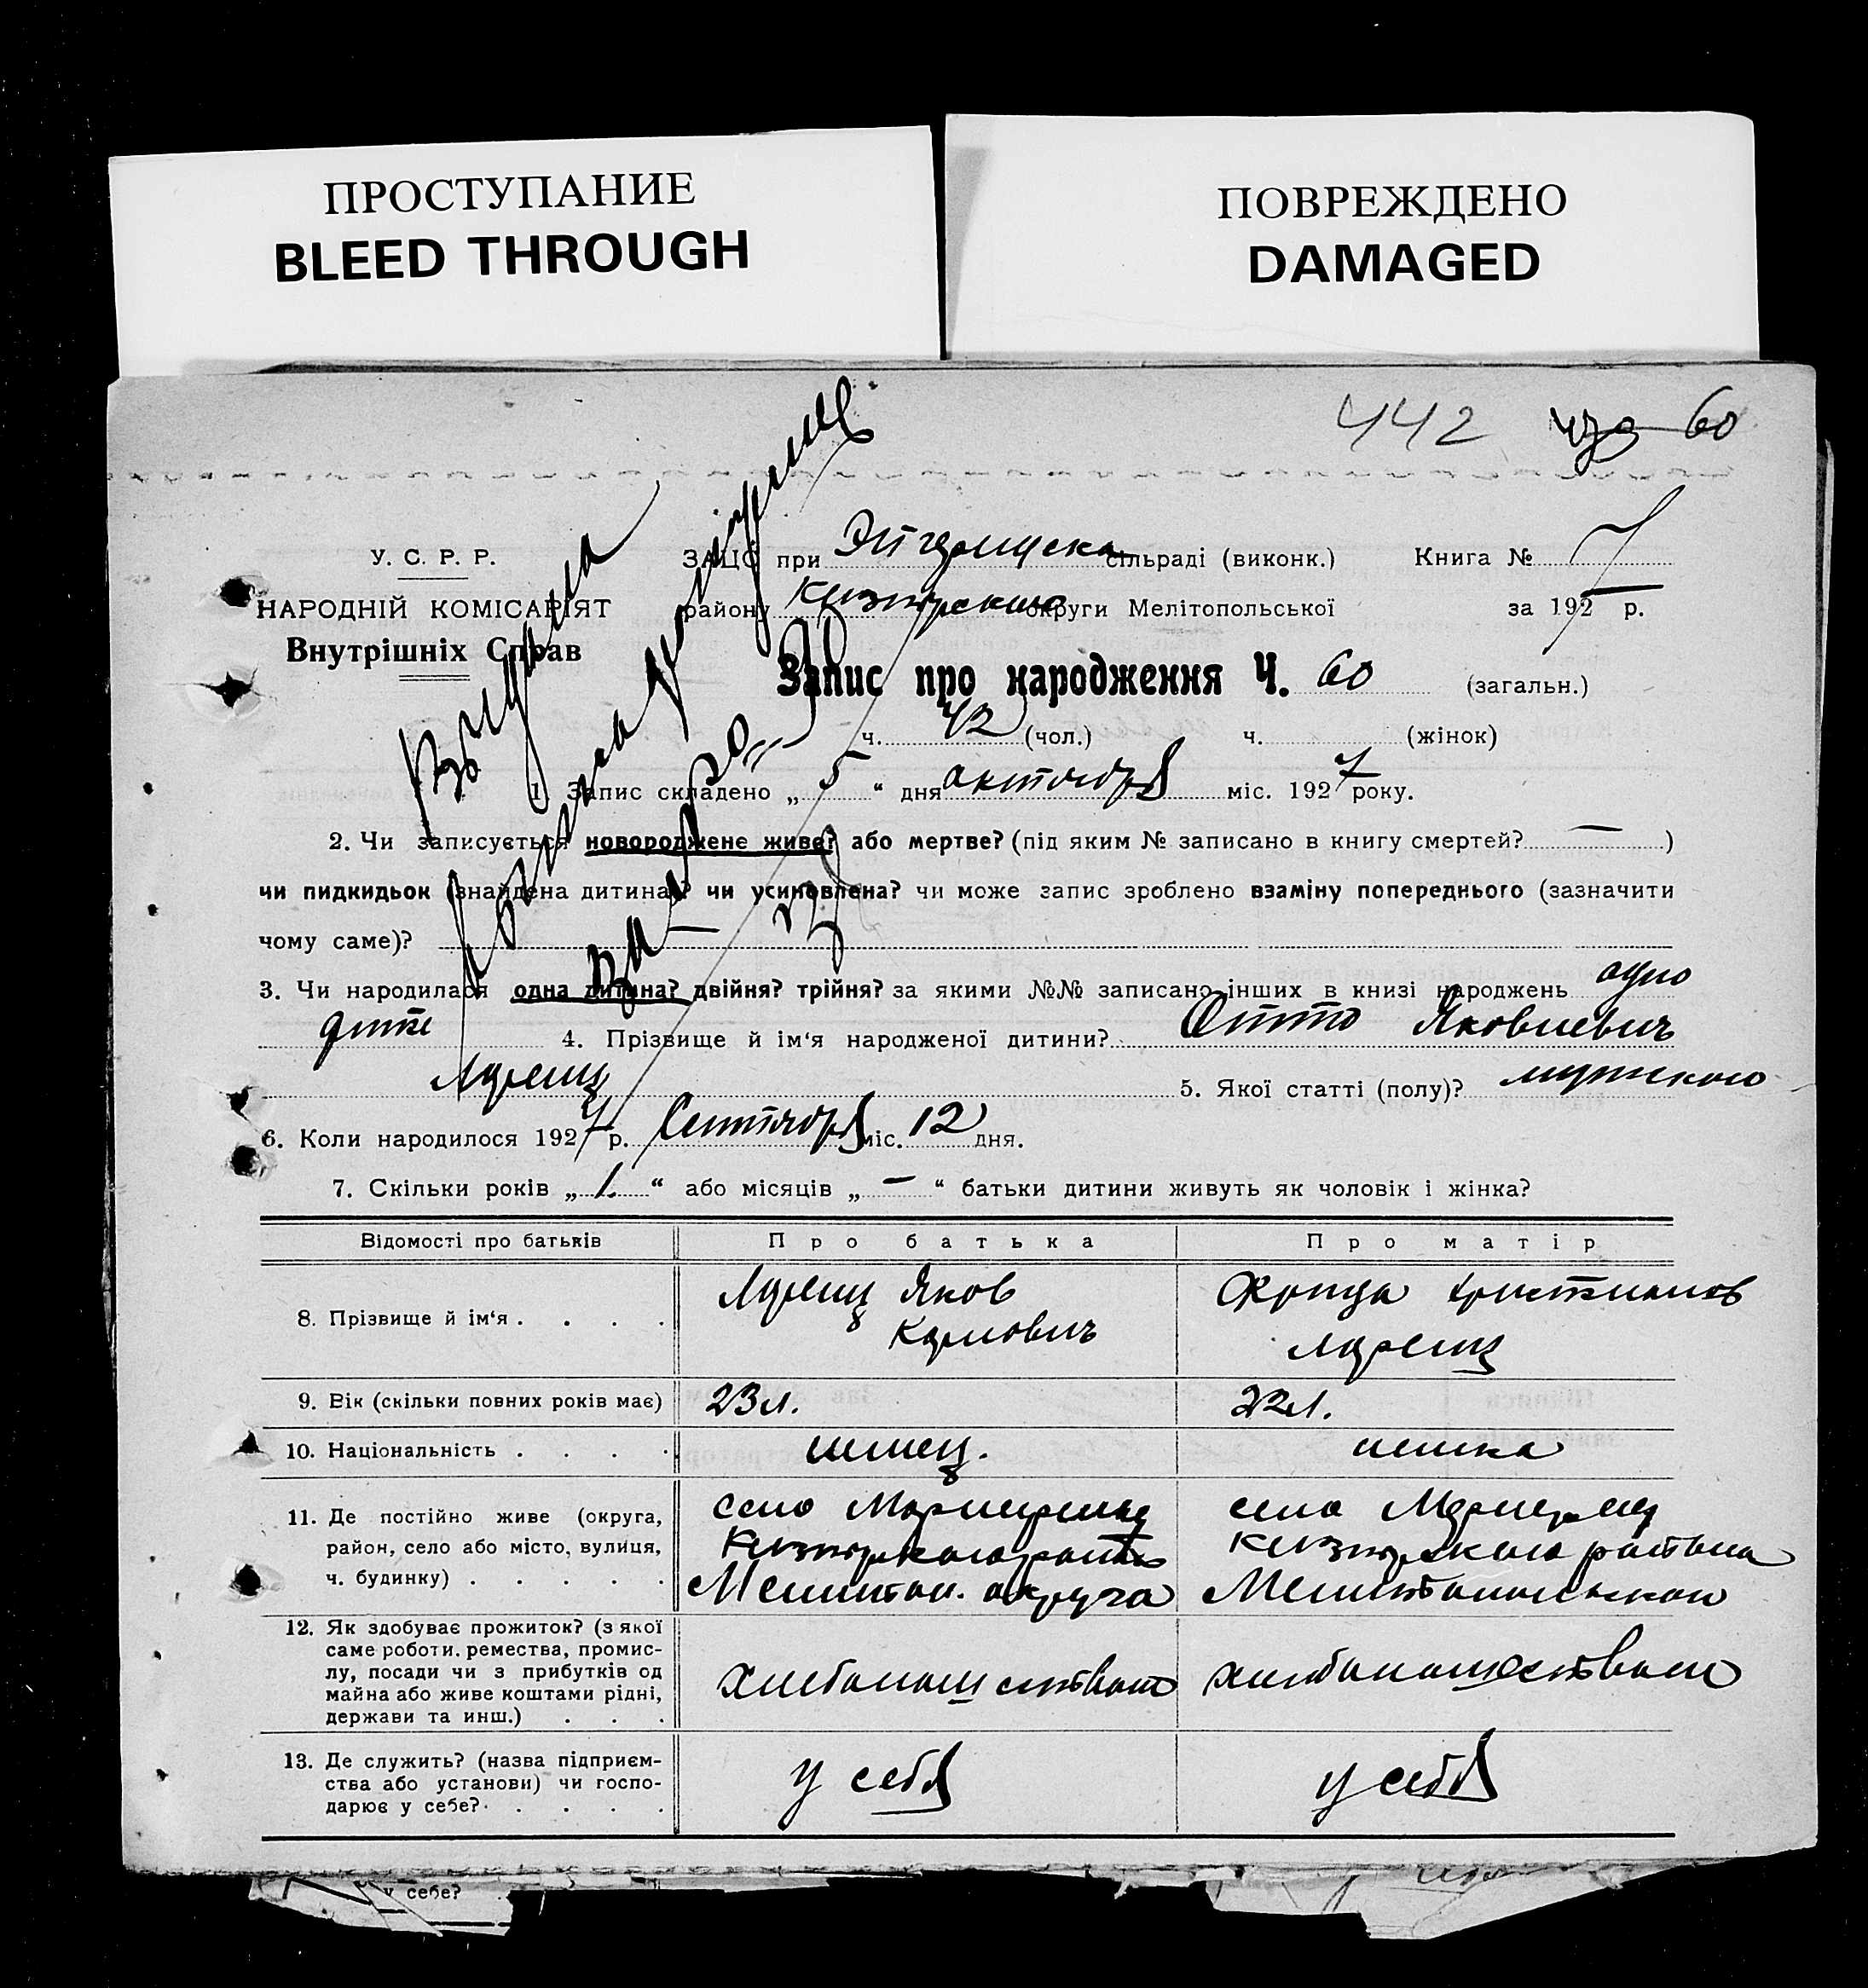 ПРОСТУПАНИЕ
BLEED THROUGH
ПОВРЕЖДЕНО
DAMAGED
442 60
У. С. Р. Р.
НАРОДНІЙ КОМІСАРІЯТ
Внутрішніх Справ
ЗАЦС при сільраді (виконк.) Книга № 7
району округи Мелітопольської за 1927 р.
Запис про народження Ч. 60 (загальн.)
ч. 42 (чол.) ч. (жінок)
1. Запис складено „ 5 “ дня октября міс. 1927 року.
2. Чи записується новороджене живе? або мертве? (під яким № записано в книгу смертей? — )
чи пидкидьок (знайдена дитина)? чи усиновлена? чи може запис зроблено взаміну попереднього (зазначити
чому саме)? —
3. Чи народилася одна дитина? двійня? трійня? за якими №№ записано інших в книзі народжень одно
дите 4. Прізвище й ім'я народженої дитини? Отто Яковлевич
Лоренц 5. Якої статті (полу)? мужского
6. Коли народилося 1927 р. Сентября міс. 12 дня.
7. Скільки років „ 1 “ або місяців „ — “ батьки дитини живуть як чоловік і жінка?
Відомості про батьків Про батька Про матір
8. Прізвище й ім'я . . . . Лоренц Яков
Лоренц
9. Вік (скільки повних років має) 23 л. 22 л.
10. Національність . . . . немец. немка
11. Де постійно живе (округа, село село
район, село або місто, вулиця,
ч. будинку) . . . . . Мелитоп. округа
12. Як здобуває прожиток? (з якої
саме роботи. ремества, промис-
лу, посади чи з прибутків од
майна або живе коштами рідні, хлебопашеством хлебопашеством
держави та инш.) . . .
13. Де служить? (назва підприєм-
ства або установи) чи госпо- у себя у себя
дарює у себе? . . . .
у себе?